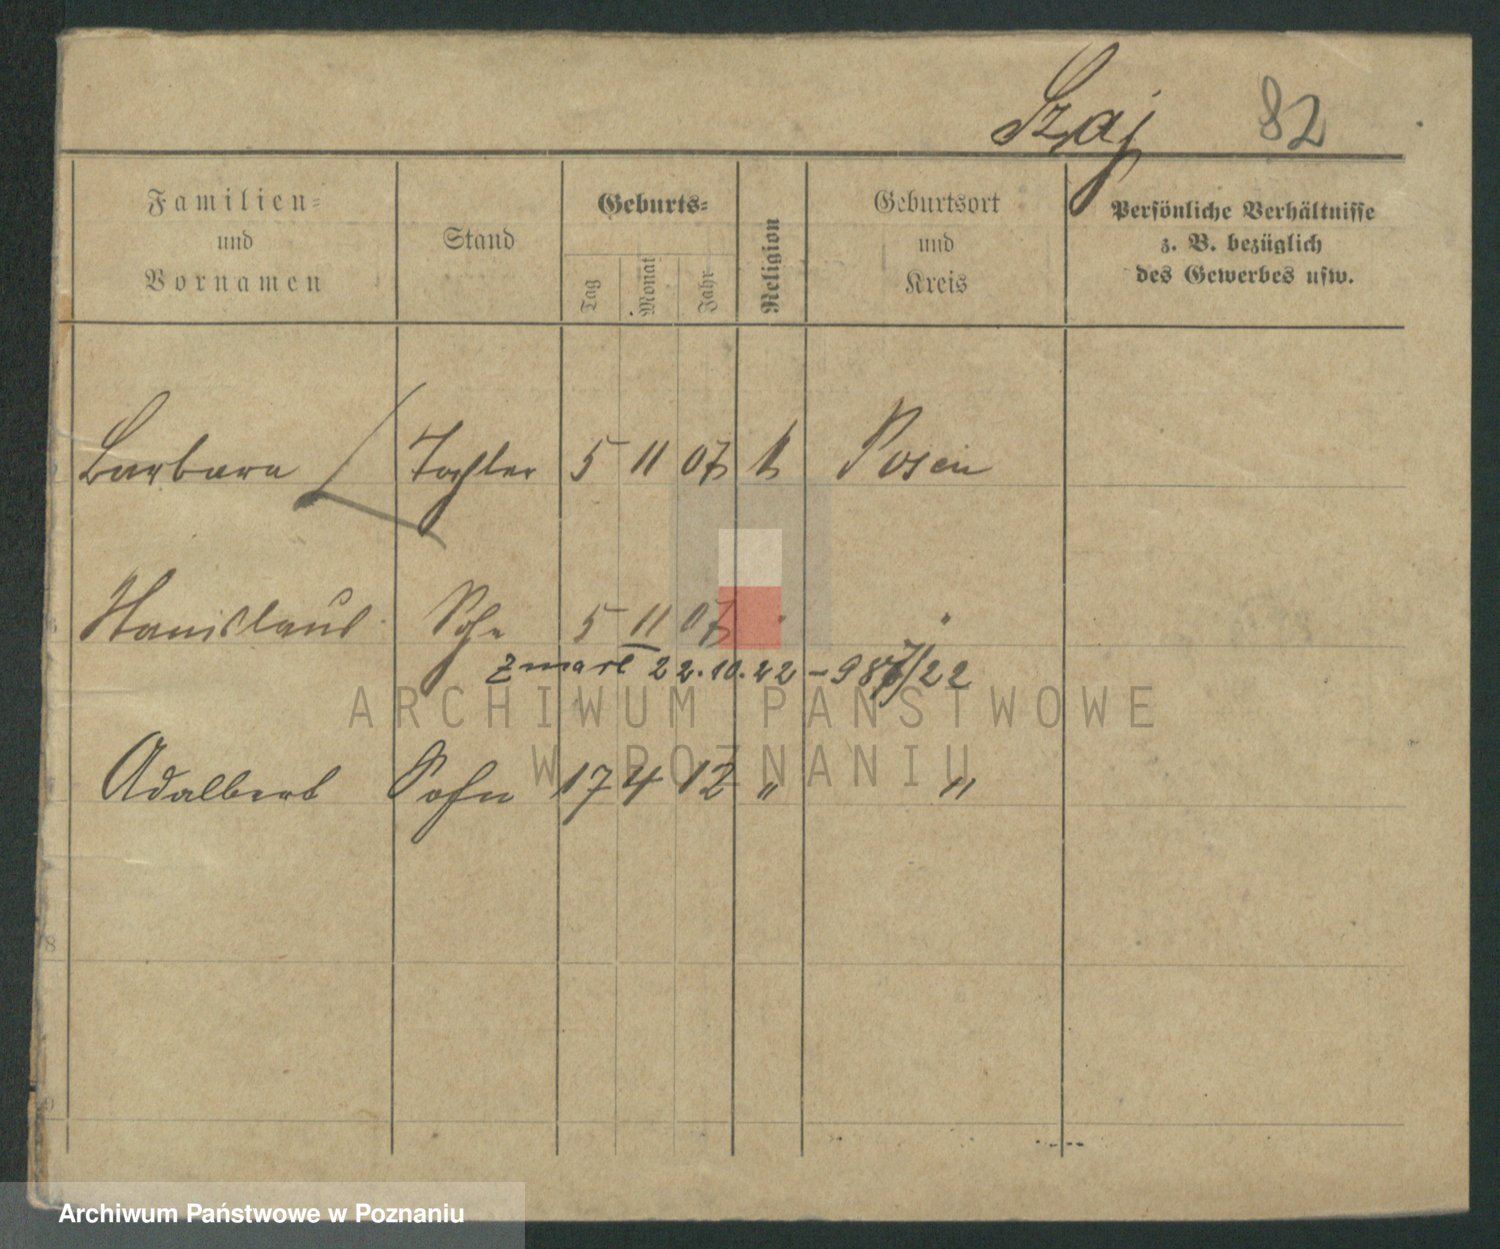 Szaj 82
Familien-
und
Vornamen
Stand
Geburts-
Tag Monat Jahr
Religion
Geburtsort
und
Kreis
Persönliche Verhältnisse
z. B. bezüglich
des Gewerbes usw.
Barbara Tochter 5 11 07 k Posen
Stanislaus Sohn 5 11 07 " "
zmarł 22.10.22 – 987/22
Adalbert Sohn 17 4 12 " "
8
9
ARCHIWUM PAŃSTWOWE
W POZNANIU
Archiwum Państwowe w Poznaniu